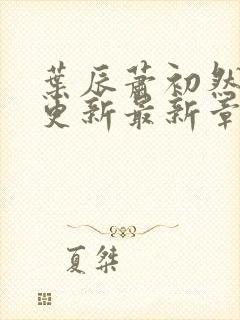 葉辰蕭初然
更新最新章
夏桀